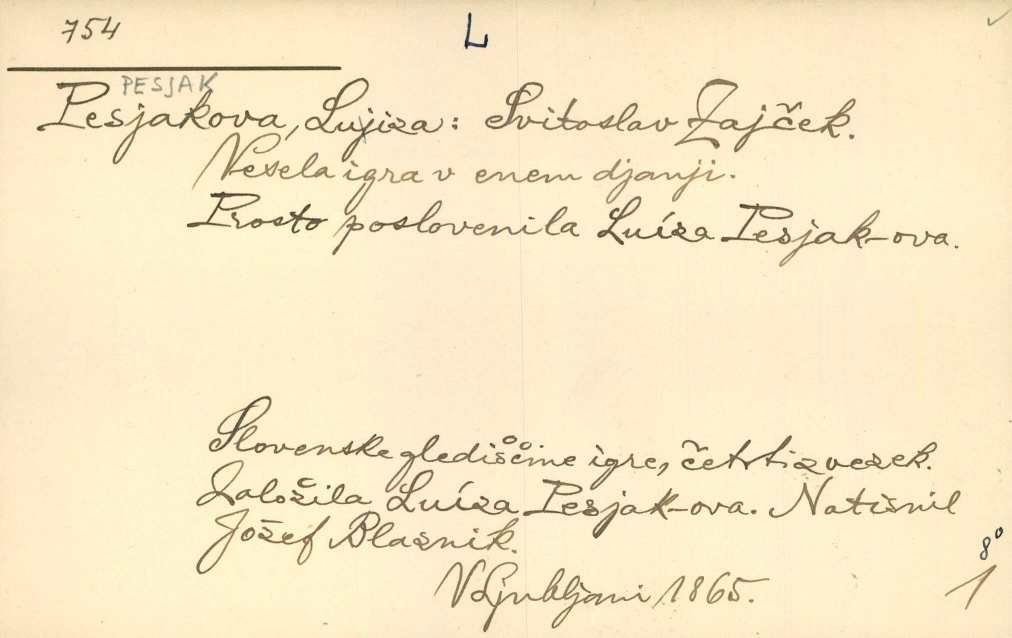 754
L
PESJAK
Pesjakova, Lujiza: Svitoslav Zajček.
Vesela igra v enem djanji.
Prosto poslovenila Luíza Pesjak-ova.
Slovenske glediščine igre, četrti zvezek.
Založila Luíza Pesjak-ova. Natisnil
Jožef Blaznik.
V Ljubljani 1865.
8°
1